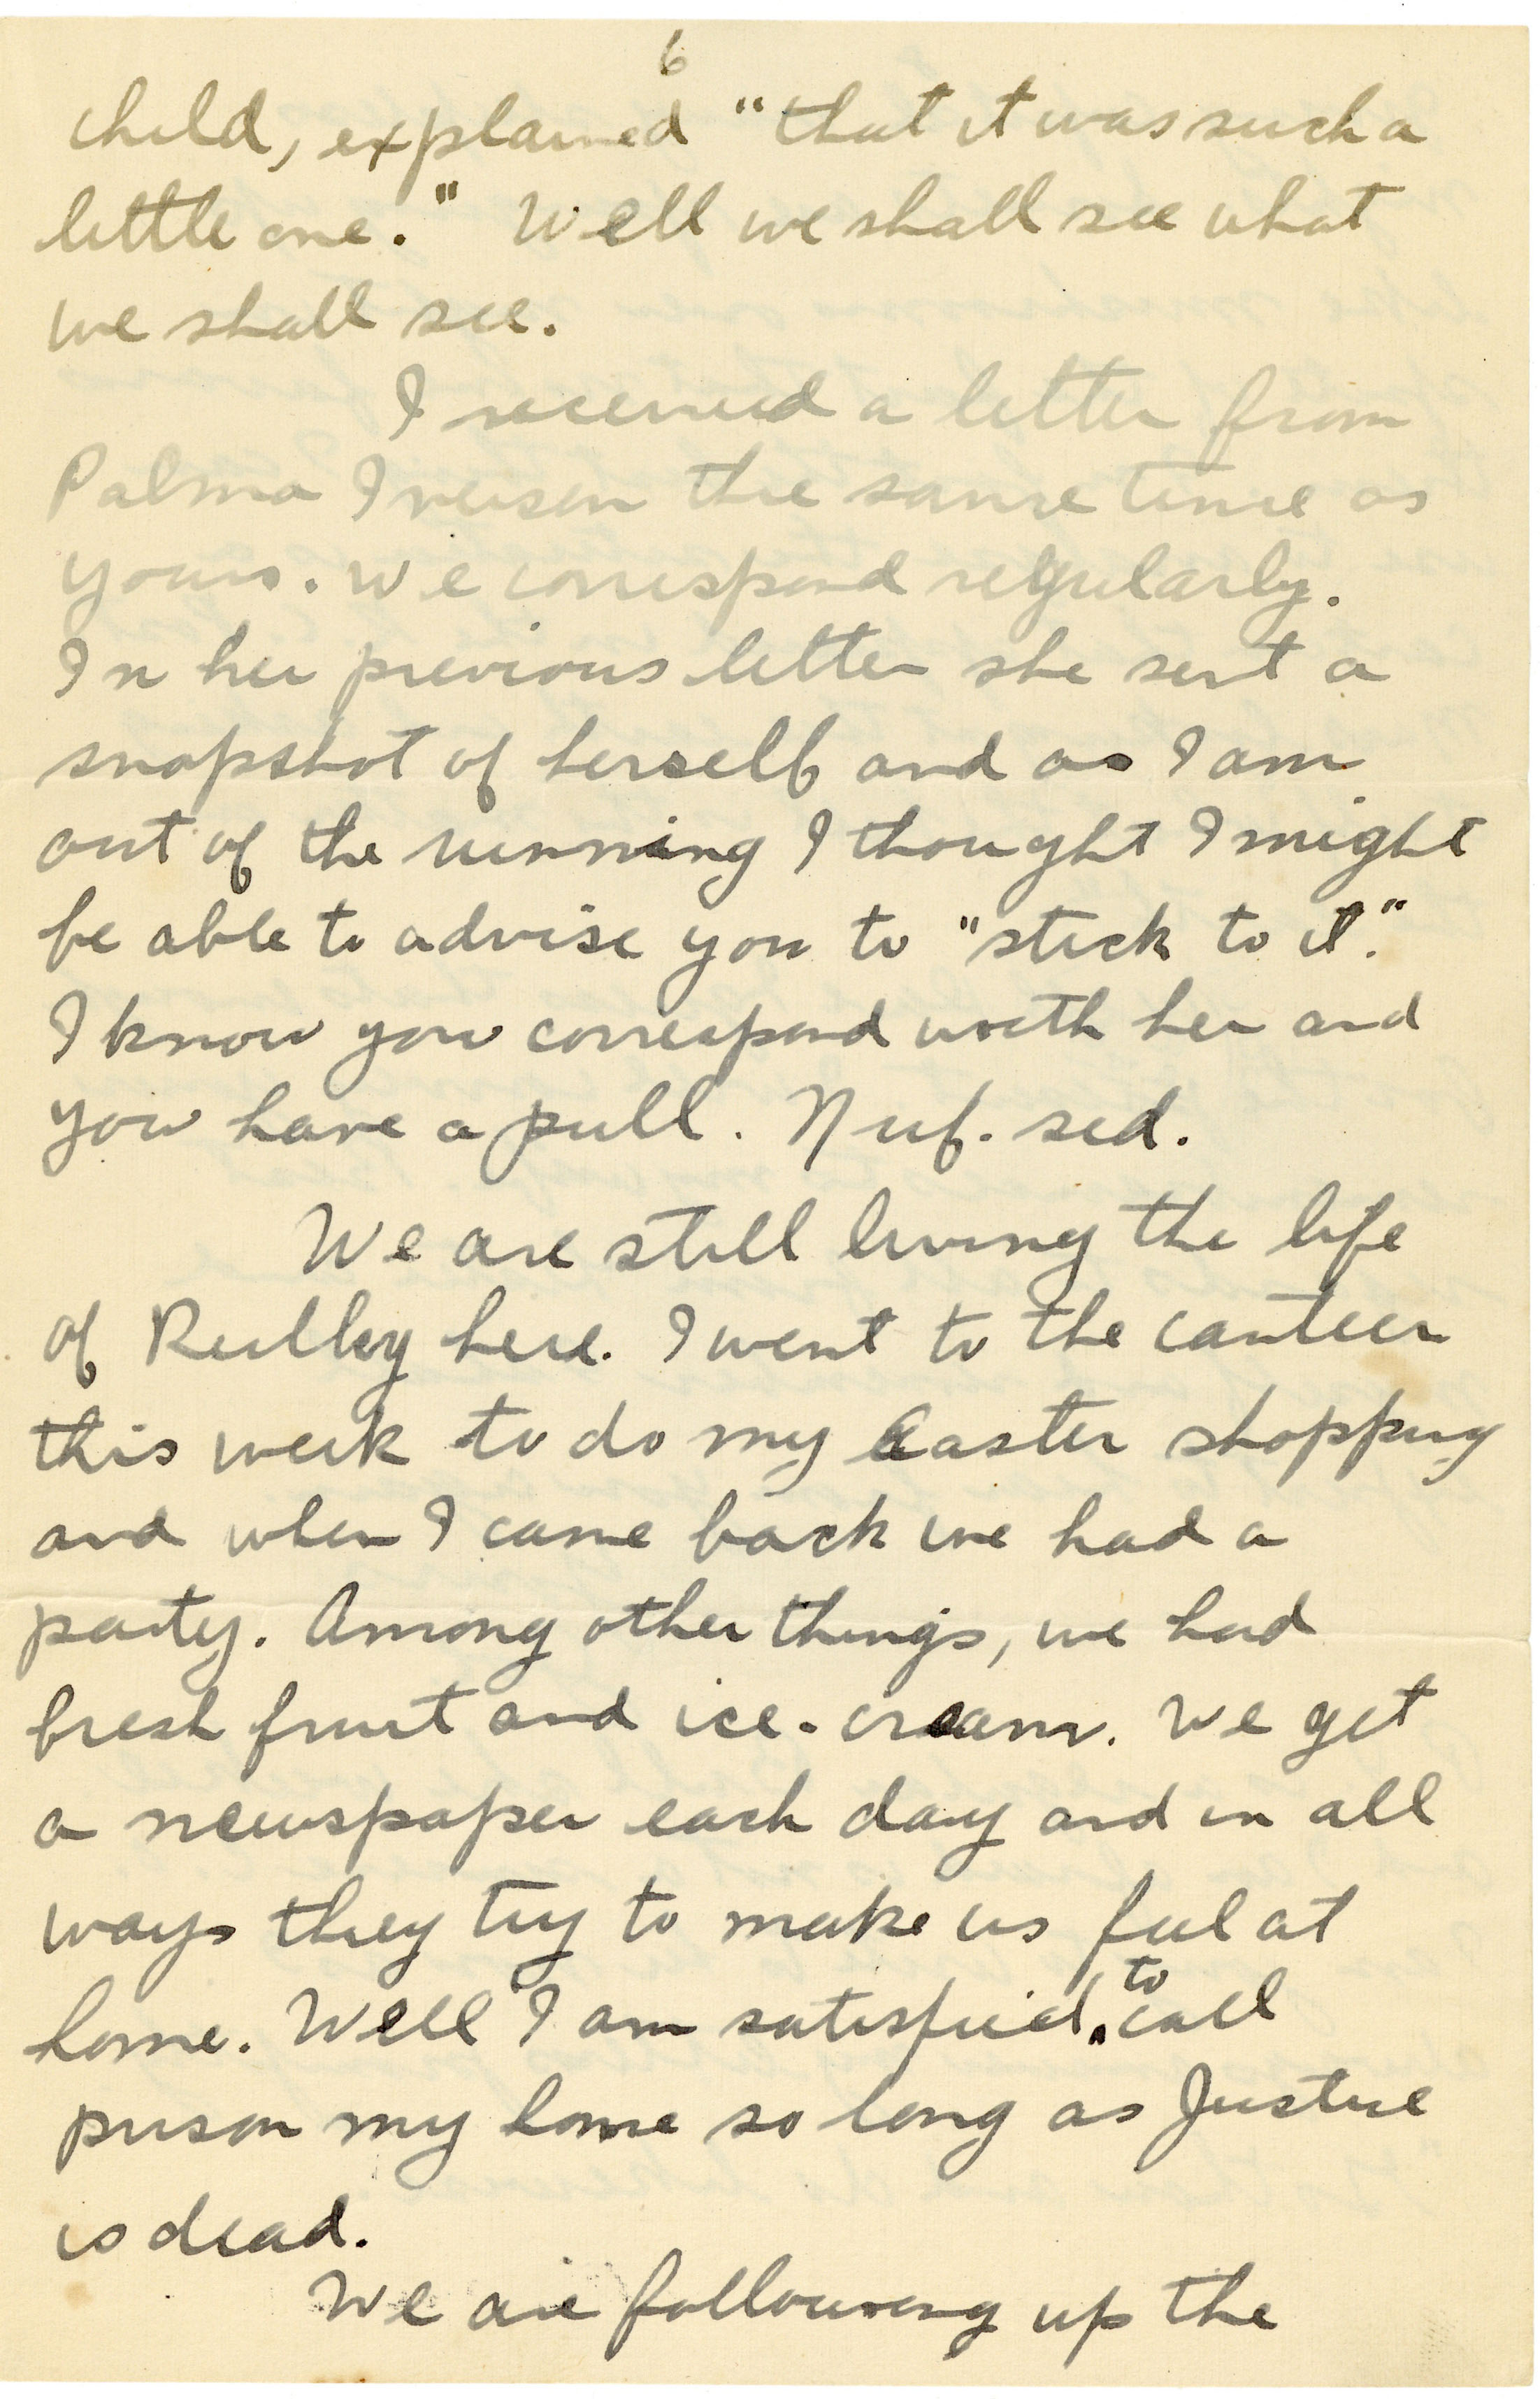 6
child, explained "that it was such a
little one." Well we shall see what
we shall see.
I received a letter from
Palma Iverson the same time as
yours. We correspond regularly.
In her previous letter she sent a
snapshot of herself and as I am
out of the running I thought I might
be able to advise you to "stick to it."
I know you correspond with her and
you have a pull. Nuf. sed.
We are still living the life
of Reilley here. I went to the canteen
this week to do my Easter shopping
and when I came back we had a
party. Among other things, we had
fresh fruit and ice-cream. We get
a newspaper each day and in all
ways they try to make us feel at
home. Well I am satisfied to call
prison my home so long as Justice
is dead.
We are following up the